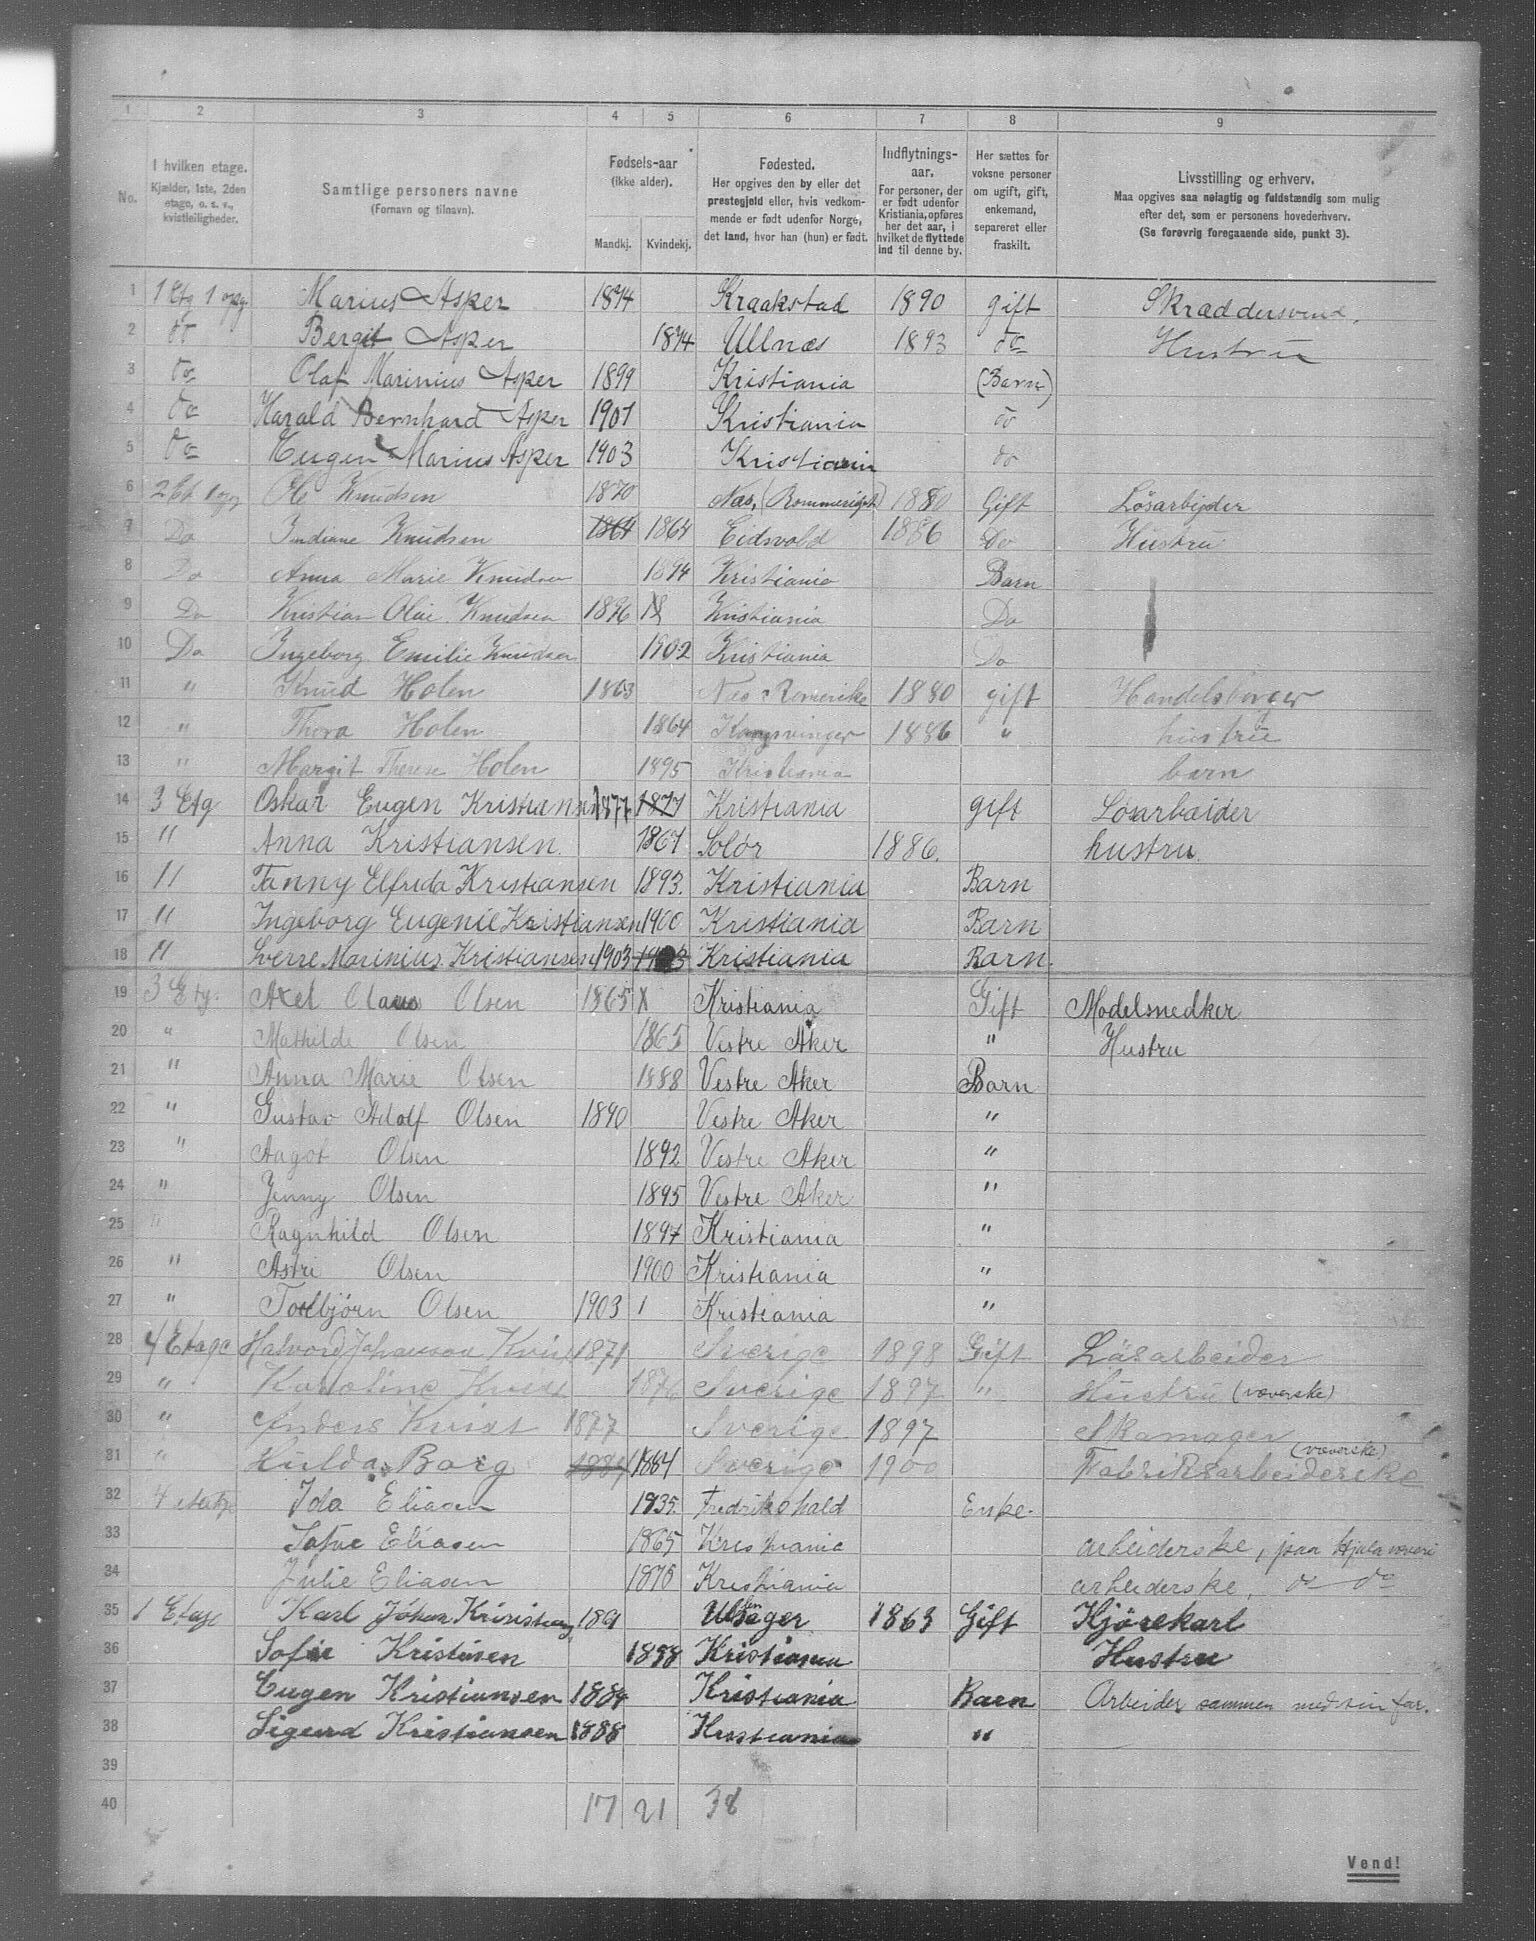 1 2 3 4 5 6 7 8 9
No. I hvilken etage. Kjælder, 1ste, 2den etage, o. s. v., kvistleiligheder. Samtlige personers navne (Fornavn og tilnavn). Fødsels-aar (ikke alder). Mandkj. Kvindekj. Fødested. Her opgives den by eller det prestegjeld eller, hvis vedkommende er født udenfor Norge, det land, hvor han (hun) er født. Indflytnings-aar. For personer, der er født udenfor Kristiania, opføres her det aar, i hvilket de flyttede ind til denne by. Her sættes for voksne personer om ugift, gift, enkemand, separeret eller fraskilt. Livsstilling og erhverv. Maa opgives saa nøiagtig og fuldstændig som mulig efter det, som er personens hovederhverv. (Se forøvrig foregaaende side, punkt 3).
1 1 Etg 1 opg. Marius Asper 1874 Kraakstad 1890 gift Skræddersvend.
2 do Bergit Asper 1874 Ullnæs 1893 do Hustru
3 do Olaf Marinius Asper 1899 Kristiania (Barn)
4 do Harald Bernhard Asper 1901 Kristiania do
5 do Eugen Marius Asper 1903 Kristiania do
6 2 Et 1 opg Ole Knudsen 1870 Næs, (Rommeriget) 1880 Gift Løsarbejder
7 Do Indiane Knudsen 1864 1864 Eidsvold 1886 Do Hustru
8 Do Anna Marie Knudsen 1894 Kristiania Barn
9 Do Kristian Olai Knudsen 1896 18 Kristiania Do
10 Do Ingeborg Emilie Knudsen 1902 Kristiania Do
11 " Knud Holen 1863 Næs Romerike 1880 gift Handelsborger
12 " Thora Holen 1864 Kongsvinger 1886 " hustru
13 " Margit Therese Holen 1895 Kristiania barn
14 3 Etg Oskar Eugen Kristiansen 1877 1877 Kristiania gift Løsarbeider
15 " Anna Kristiansen. 1867 Solør 1886. hustru.
16 " Fanny Elfrida Kristiansen 1893. Kristiania Barn
17 " Ingeborg Eugenie Kristiansen 1900 Kristiania Barn
18 " Sverre Marinius Kristiansen 1903 1903 Kristiania Barn.
19 3 Etg. Axel Olaus Olsen 1865 X Kristiania Gift Modelsnedker
20 " Mathilde Olsen 1865 Vestre Aker " Hustru
21 " Anna Marie Olsen 1888 Vestre Aker Barn
22 " Gustav Adolf Olsen 1890 Vestre Aker "
23 " Aagot Olsen 1892 Vestre Aker "
24 " Jenny Olsen 1895 Vestre Aker "
25 " Ragnhild Olsen 1897 Kristiania "
26 " Astri Olsen 1900 Kristiania "
27 " Torbjørn Olsen 1903 1 Kristiania "
28 4 Etage Halvord Johanson Kvist 1871 Sverige 1898 Gift Løsarbeider
29 " Karoline Kvist 1876 Sverige 1897 " Hustru (væverske)
30 " Anders Kvist 1877 Sverige 1897 Skomager
31 " Hulda Borg 1884 1884 Sverige 1900 Fabriksarbeiderske (væverske)
32 4 etatge Ida Eliasen 1835. Fredrikshald Enke.
33 Sofve Eliasen 1865 Kristiania arbeiderske, paa Hjula væveri
34 Julie Eliasen 1875 Kristiania arbeiderske, do do
35 1 Etage Karl Johan Kristiansen Ullensager 1863 Gift Kjørekarl
36 Sofie Kristiansen 1858 Kristiania Hustru
37 Eugen Kristiansen 1884 Kristiania Barn Arbeider sammen med sin far.
38 Sigurd Kristiansen 1888 Kristiania "
39
40 17 21 38
Vend!